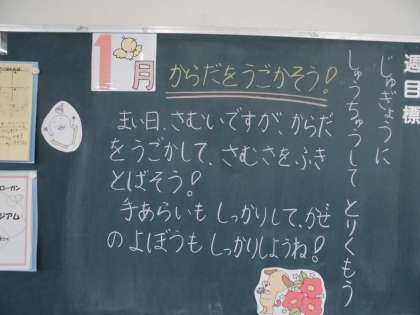 1月
からだをうごかそう!
まい日、さむいですが、からだ
をうごかして、さむさをふき
とばそう!
手あらいも しっかりして、かぜ
のよぼうも しっかりしようね!
週目標
じゅぎょうに
しゅうちゅうして とりくもう
ローガン
ジアム